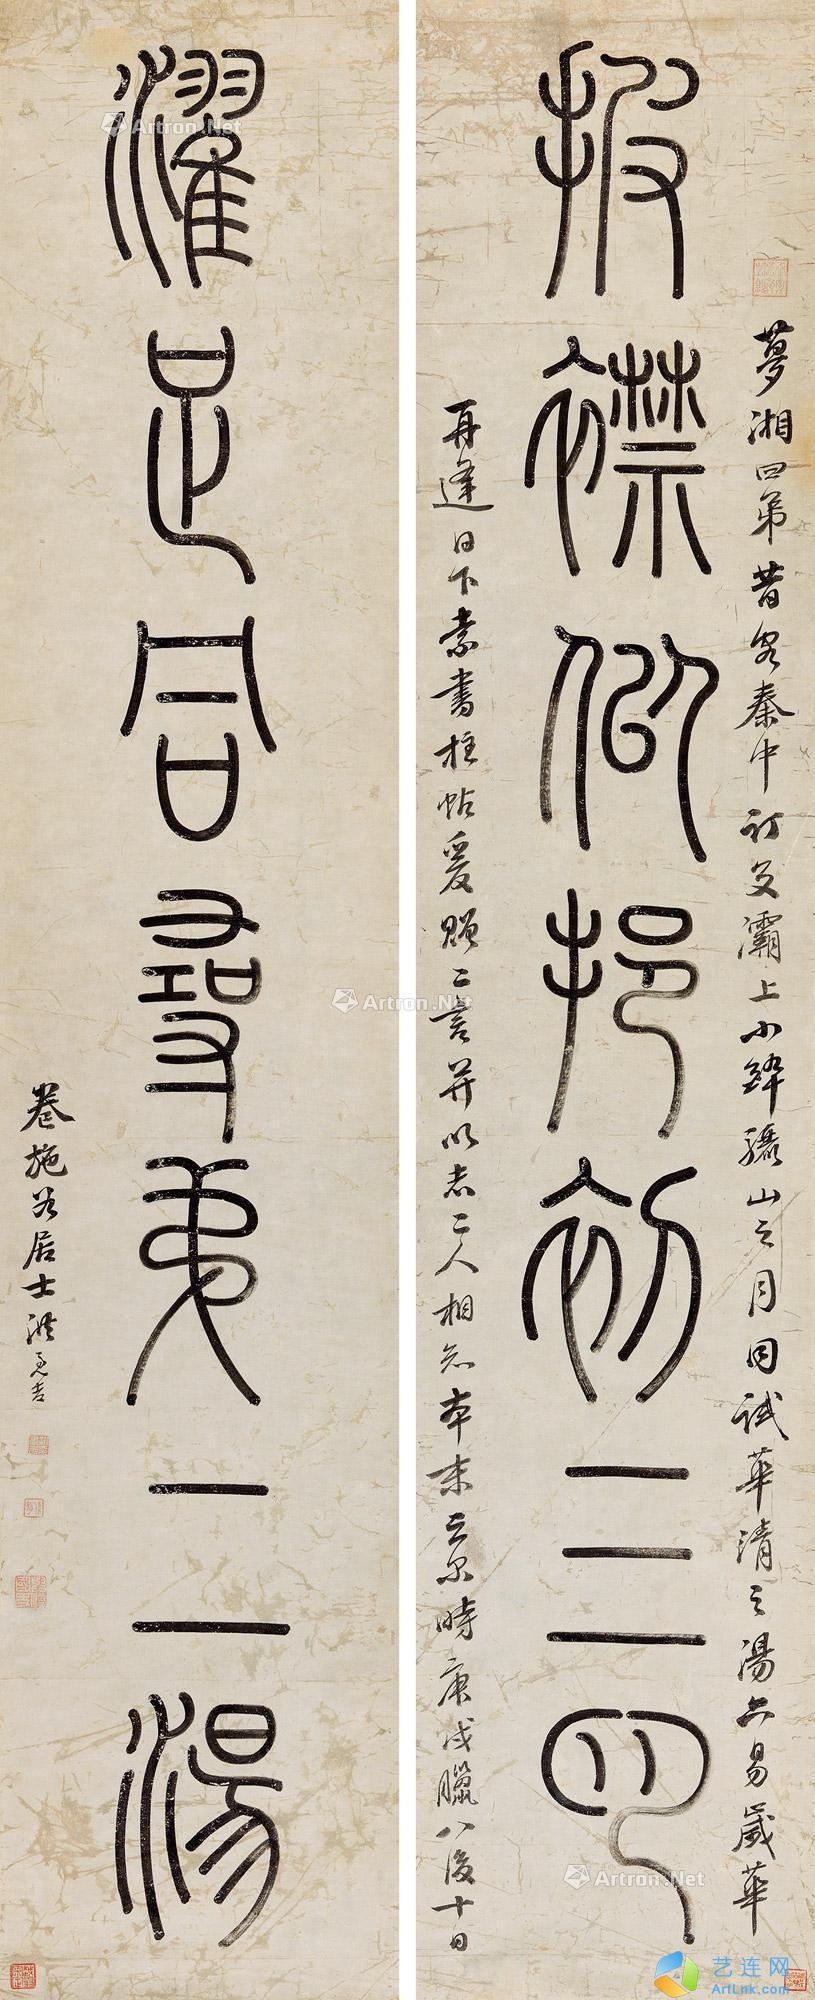 披襟似挹初三月
夢湘四弟昔客秦中訂交灞上小醉驪山之月同試華清之湯六易歲華
再逢日下索書柱帖爰贈二言并以志二人相知本末云爾時庚戌臘八後十日
濯足合尋弟二湯
卷施谷居士洪亮吉
Artron.Net
Artron.Net
Artron.Net
艺连网
ArtLink.com